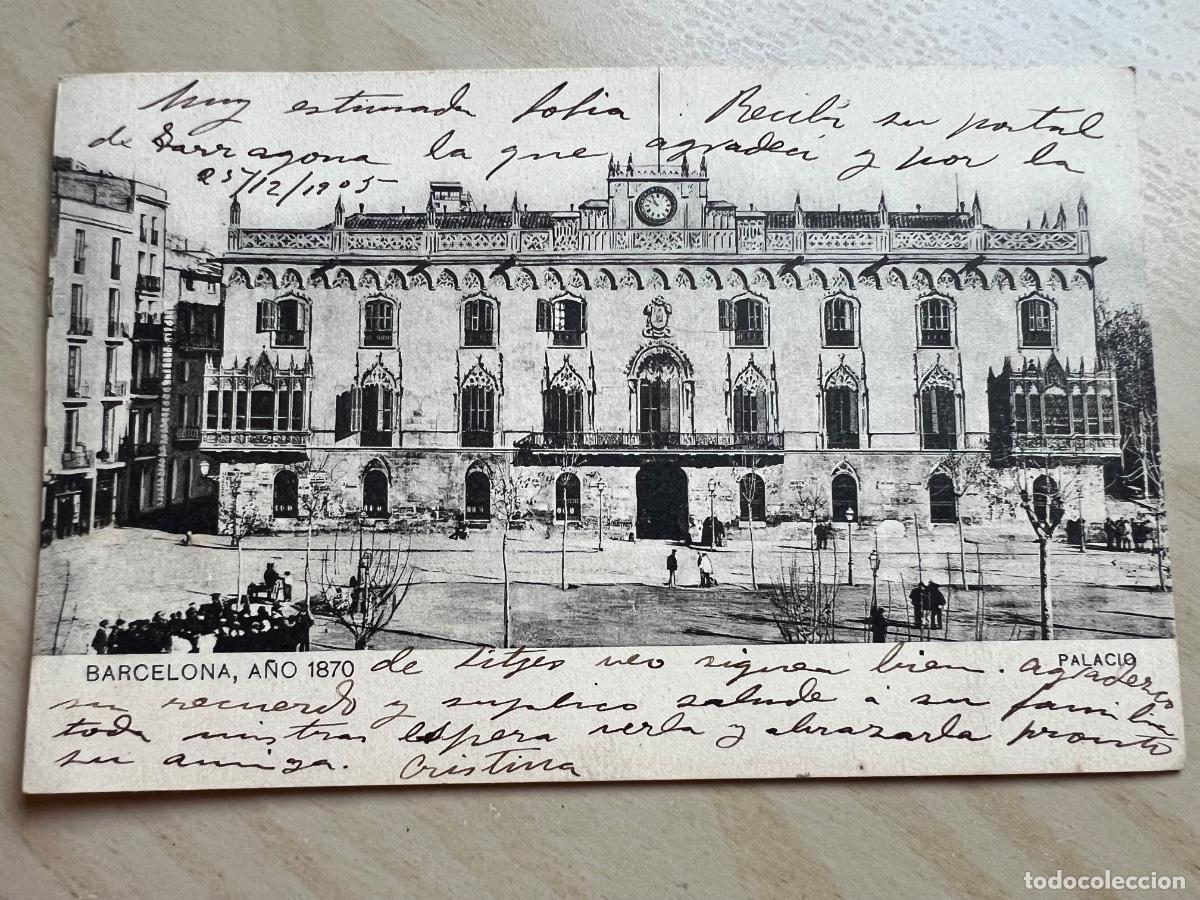 Muy estimada Sofia. Recibí su postal
de Tarragona la que agradecí y por la
25/12/1905
BARCELONA, AÑO 1870
PALACIO
de Sitjes veo siguen bien. agradezco
su recuerdo y suplico salude á su familia
toda mistras Espera verla y abrazarla pronto
su amiga. Cristina
todocoleccion